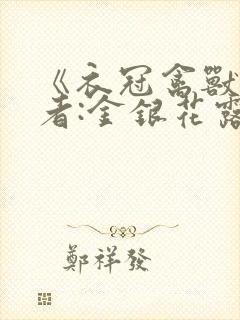 《衣冠禽獸
者:金銀花露
鄭祥發